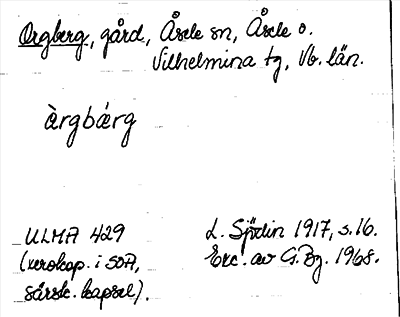 Orgberg, gård, Åsele sn, Åsele o.
Vilhelmina tg, Vb. län.
àrgbærg
ULMA 429
(xerokop. i SOA,
särsk. kapsel).
L. Sjödin 1917, s. 16.
Exc. av G. Bg. 1968.